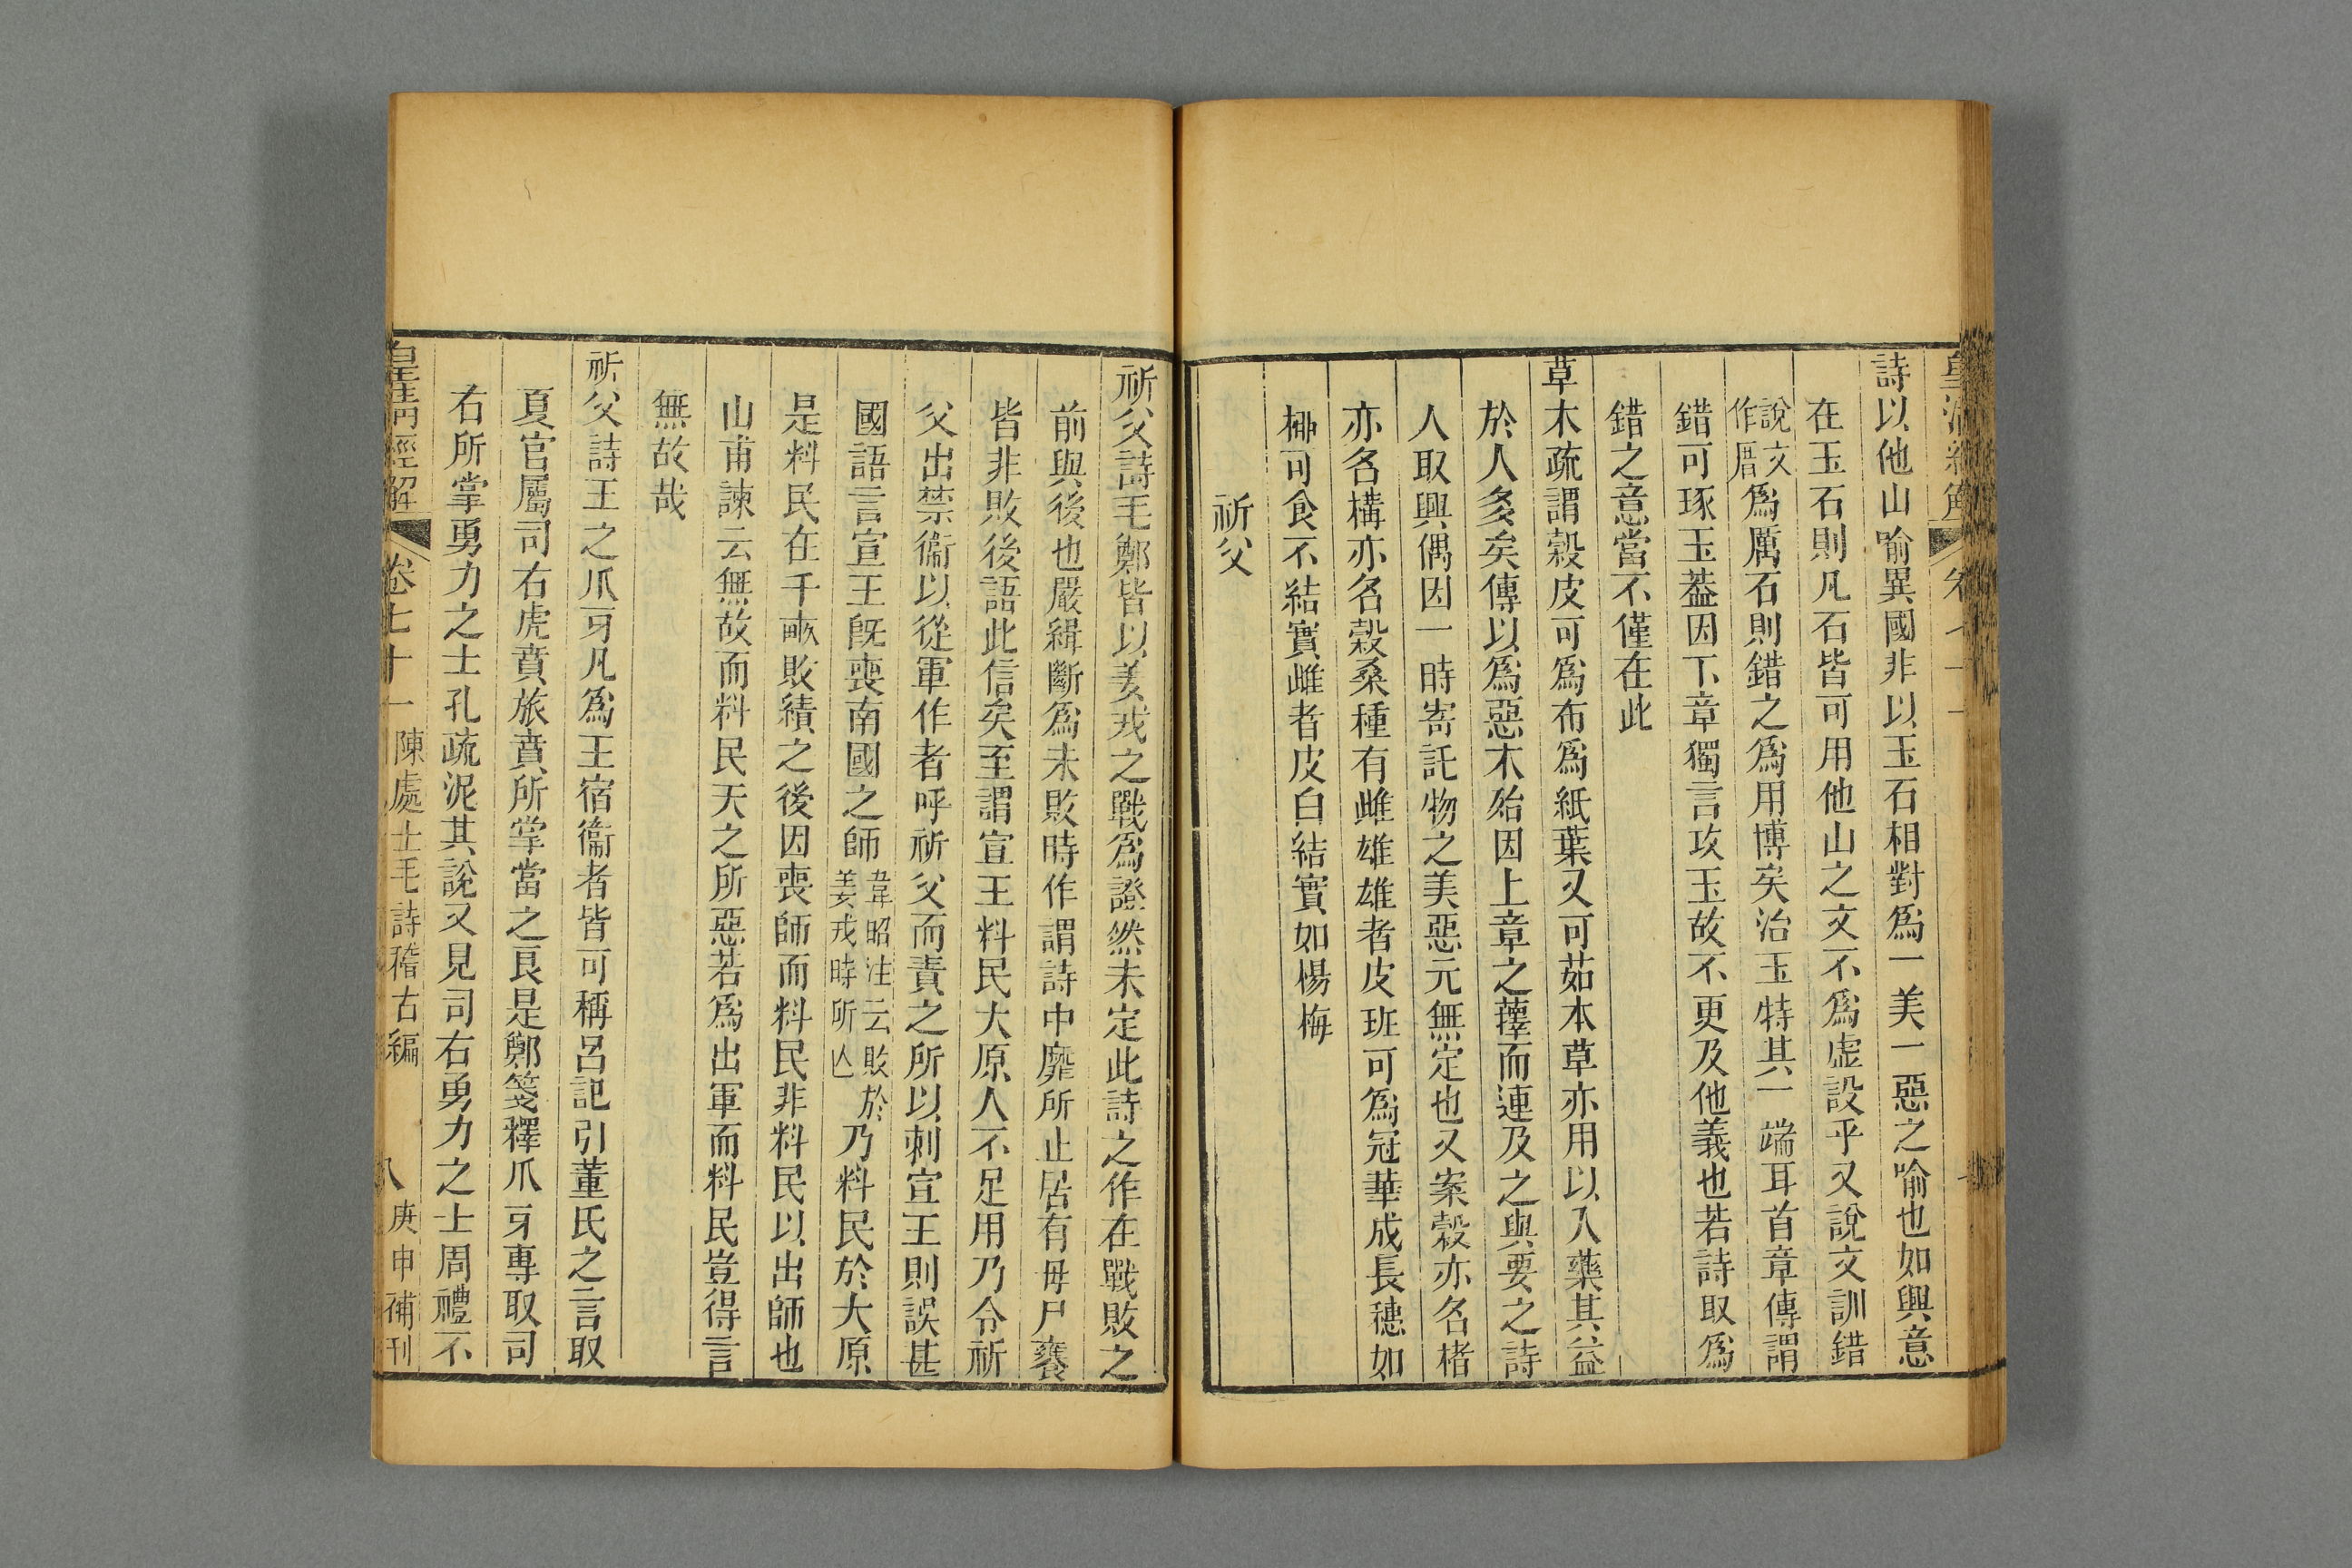 詩以他山喻異國非以玉石相對爲一美一惡之喻也如興意
在玉石則凡石皆可用他山之文不爲虛設乎又說文訓錯
說文作厝爲厲石則錯之爲用博矣治玉特其一端耳首章傳謂
錯可琢玉葢因下章獨言攻玉故不更及他義也若詩取爲
錯之意當不僅在此
草木疏謂榖皮可爲布爲紙葉又可茹本草亦用以入藥其益
於人多矣傳以爲惡木殆因上章之蘀而連及之與要之詩
人取興偶因一時寄託物之美惡元無定也又案榖亦名楮
亦名構亦名榖桑種有雌雄雄者皮班可爲冠華成長穗如
栁可食不結實雌者皮白結實如楊梅
祈父
祈父詩毛鄭皆以姜戎之戰爲證然未定此詩之作在戰敗之
前與後也嚴緝斷爲未敗時作謂詩中靡所止居有毋尸饔
皆非敗後語此信矣至謂宣王料民大原人不足用乃令祈
父出禁衞以從軍作者呼祈父而責之所以刺宣王則誤甚
國語言宣王旣喪南國之師韋昭注云敗於姜戎時所亾乃料民於大原
是料民在千畞敗績之後因喪師而料民非料民以出師也
山甫諫云無故而料民天之所惡若爲出軍而料民豈得言
無故哉
祈父詩王之爪牙凡爲王宿衞者皆可稱呂記引董氏之言取
夏官屬司右虎賁旅賁所掌當之艮是鄭箋釋爪牙專取司
右所掌勇力之士孔疏泥其說又見司右勇力之士周禮不
皇淸經解 卷七十一 陳處士毛詩稽古編 八 庚申補刊